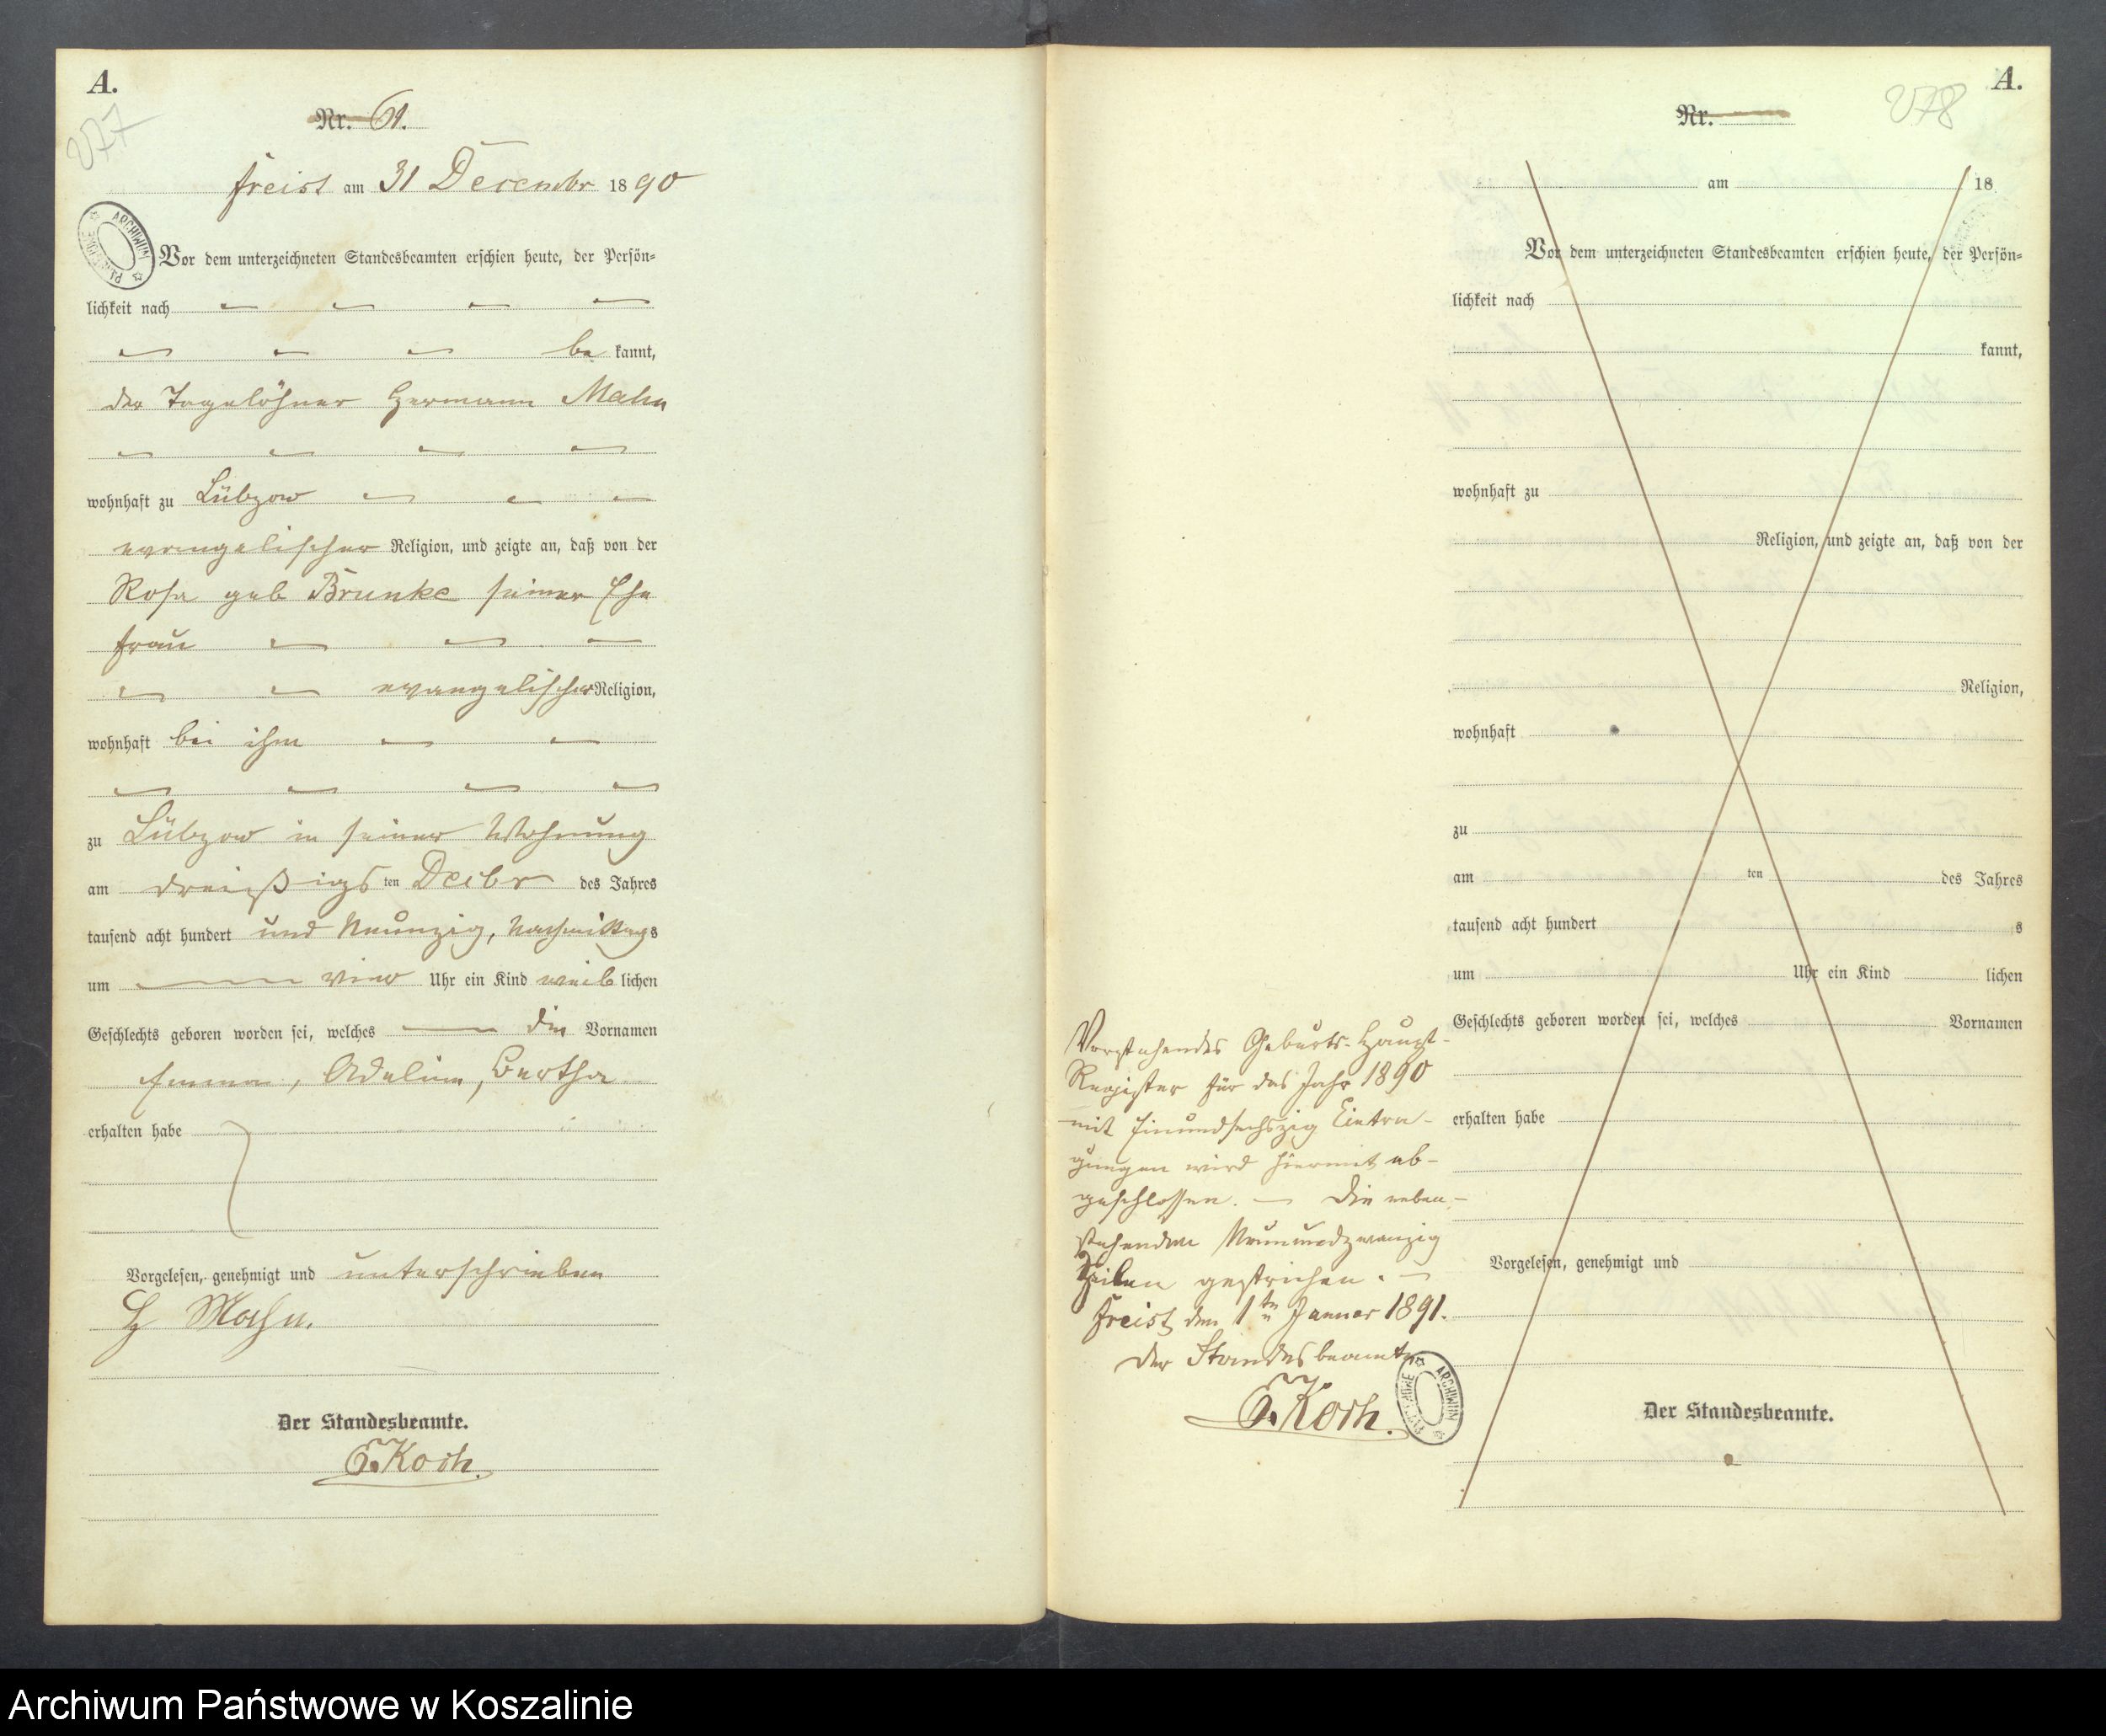 A.
277
Nr. 61.
Freist am 31 Decembr 1890
Vor dem unterzeichneten Standesbeamten erschien heute, der Persön-
lichkeit nach
be kannt,
der Tagelöhner Hermann Mahn
wohnhaft zu Lübzow
evangelischer Religion, und zeigte an, daß von der
Rosa geb Brunke seiner Ehe
frau
evangelischer Religion,
wohnhaft bei ihm
zu Lübzow in seiner Wohnung
am dreißigs ten Decbr des Jahres
tausend acht hundert und Neunzig, Nachmittags
um vier Uhr ein Kind weib lichen
Geschlechts geboren worden sei, welches die Vornamen
Emma, Adeline, Bertha
erhalten habe
Vorgelesen, genehmigt und unterschrieben
H Mahn.
Der Standesbeamte.
E. Koch.
A.
278
Nr.
am 18
Vor dem unterzeichneten Standesbeamten erschien heute, der Persön-
lichkeit nach
kannt,
wohnhaft zu
Religion, und zeigte an, daß von der
Religion,
wohnhaft
zu
am ten des Jahres
tausend acht hundert s
um Uhr ein Kind lichen
Geschlechts geboren worden sei, welches Vornamen
erhalten habe
Vorgelesen, genehmigt und
Der Standesbeamte.
Vorstehendes Geburts-Haupt-
Register für das Jahr 1890
mit Einundsechszig Eintra-
gungen wird hiermit ab-
geschlossen. — Die neben-
stehenden Neunundzwanzig
Zeilen gestrichen. —
Freist den 1ten Januar 1891.
Der Standesbeamte
E. Koch.
ARCHIWUM PAŃSTWOWE
Archiwum Państwowe w Koszalinie